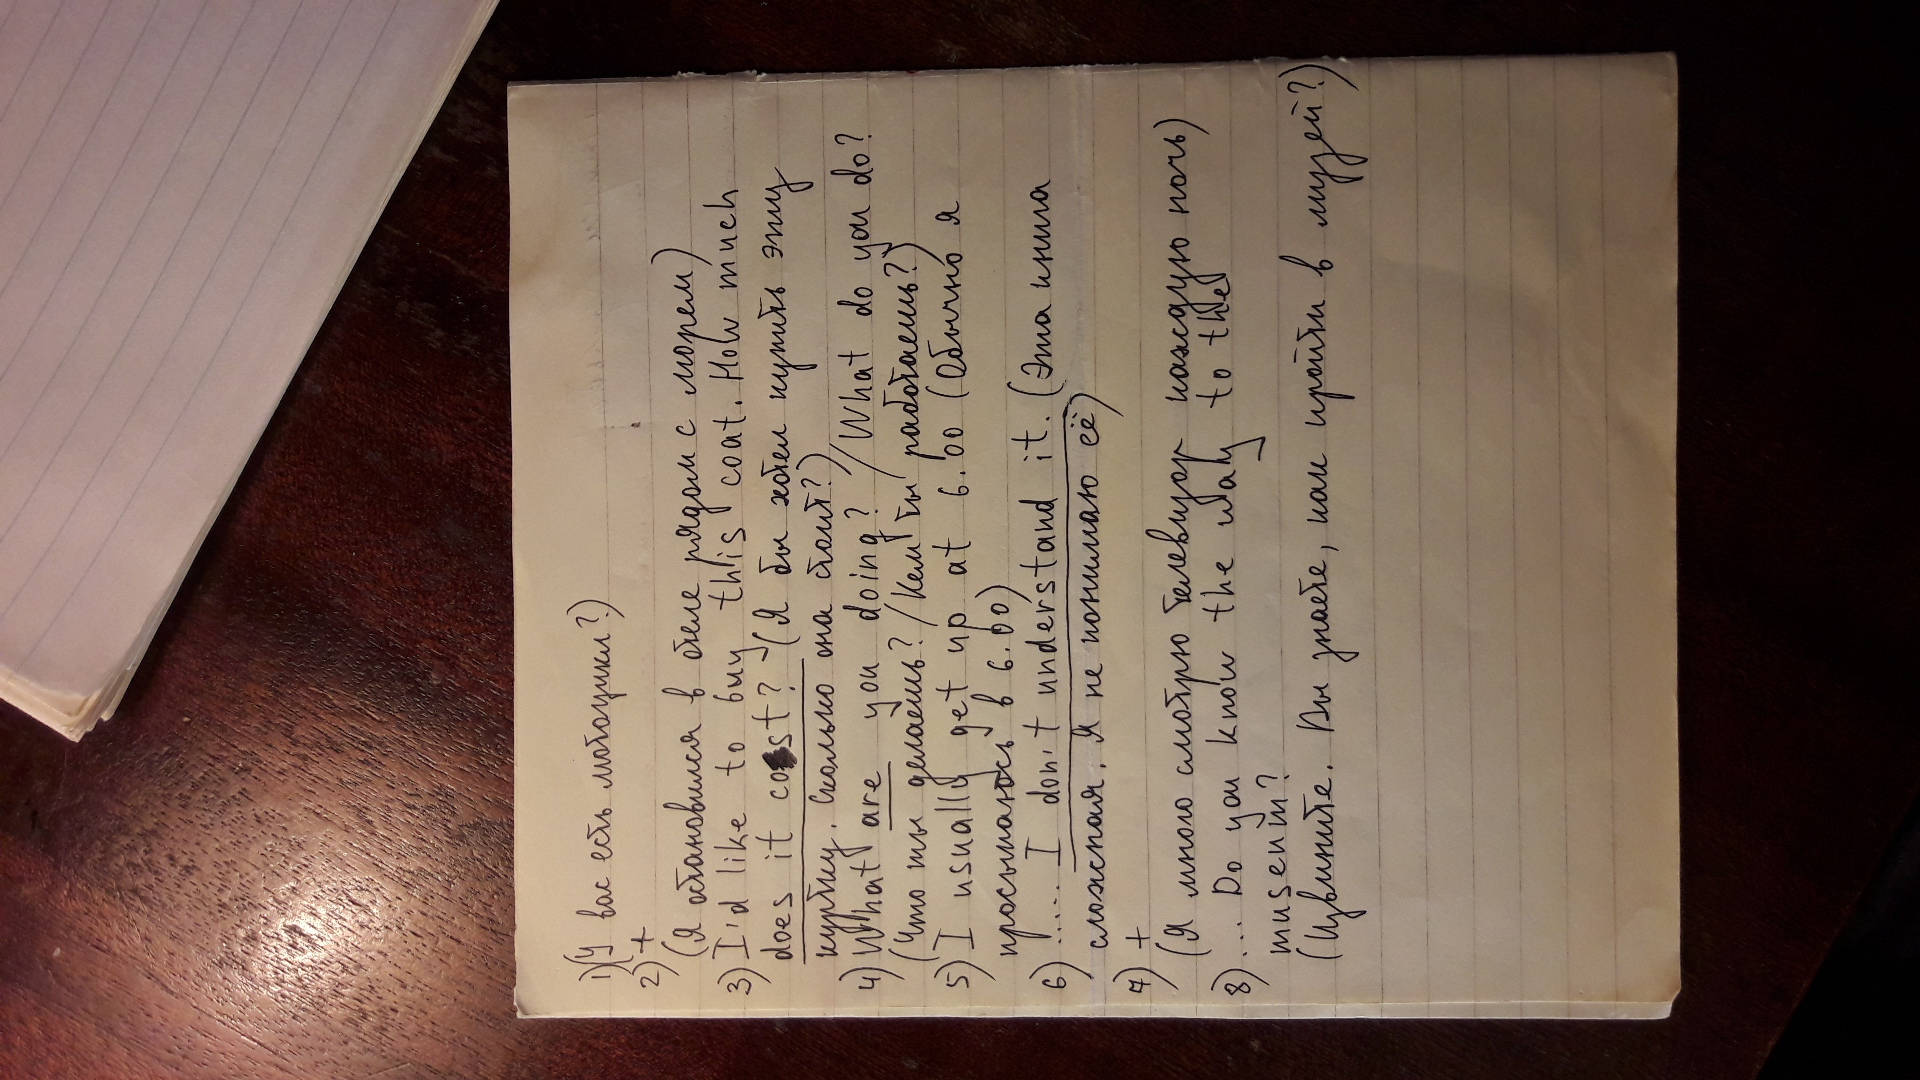 1)(У вас есть мотоцикл?)
2)+
(Я остановился в отеле рядом с морем)
3) I'd like to buy this coat. How much
does it cost? (Я бы хотел купить эту
куртку. Сколько она стоит?)
4) What are you doing? / What do you do?
(Что ты делаешь? / Кем ты работаешь?)
5) I usually get up at 6.00 (Обычно я
просыпаюсь в 6.00)
6) .... I don't understand it. (Эта книга
сложная. Я не понимаю её)
7) +
(Я много смотрю телевизор каждую ночь)
8) ... Do you know the way to the
museum?
(Извините. Вы знаете, как пройти в музей?)